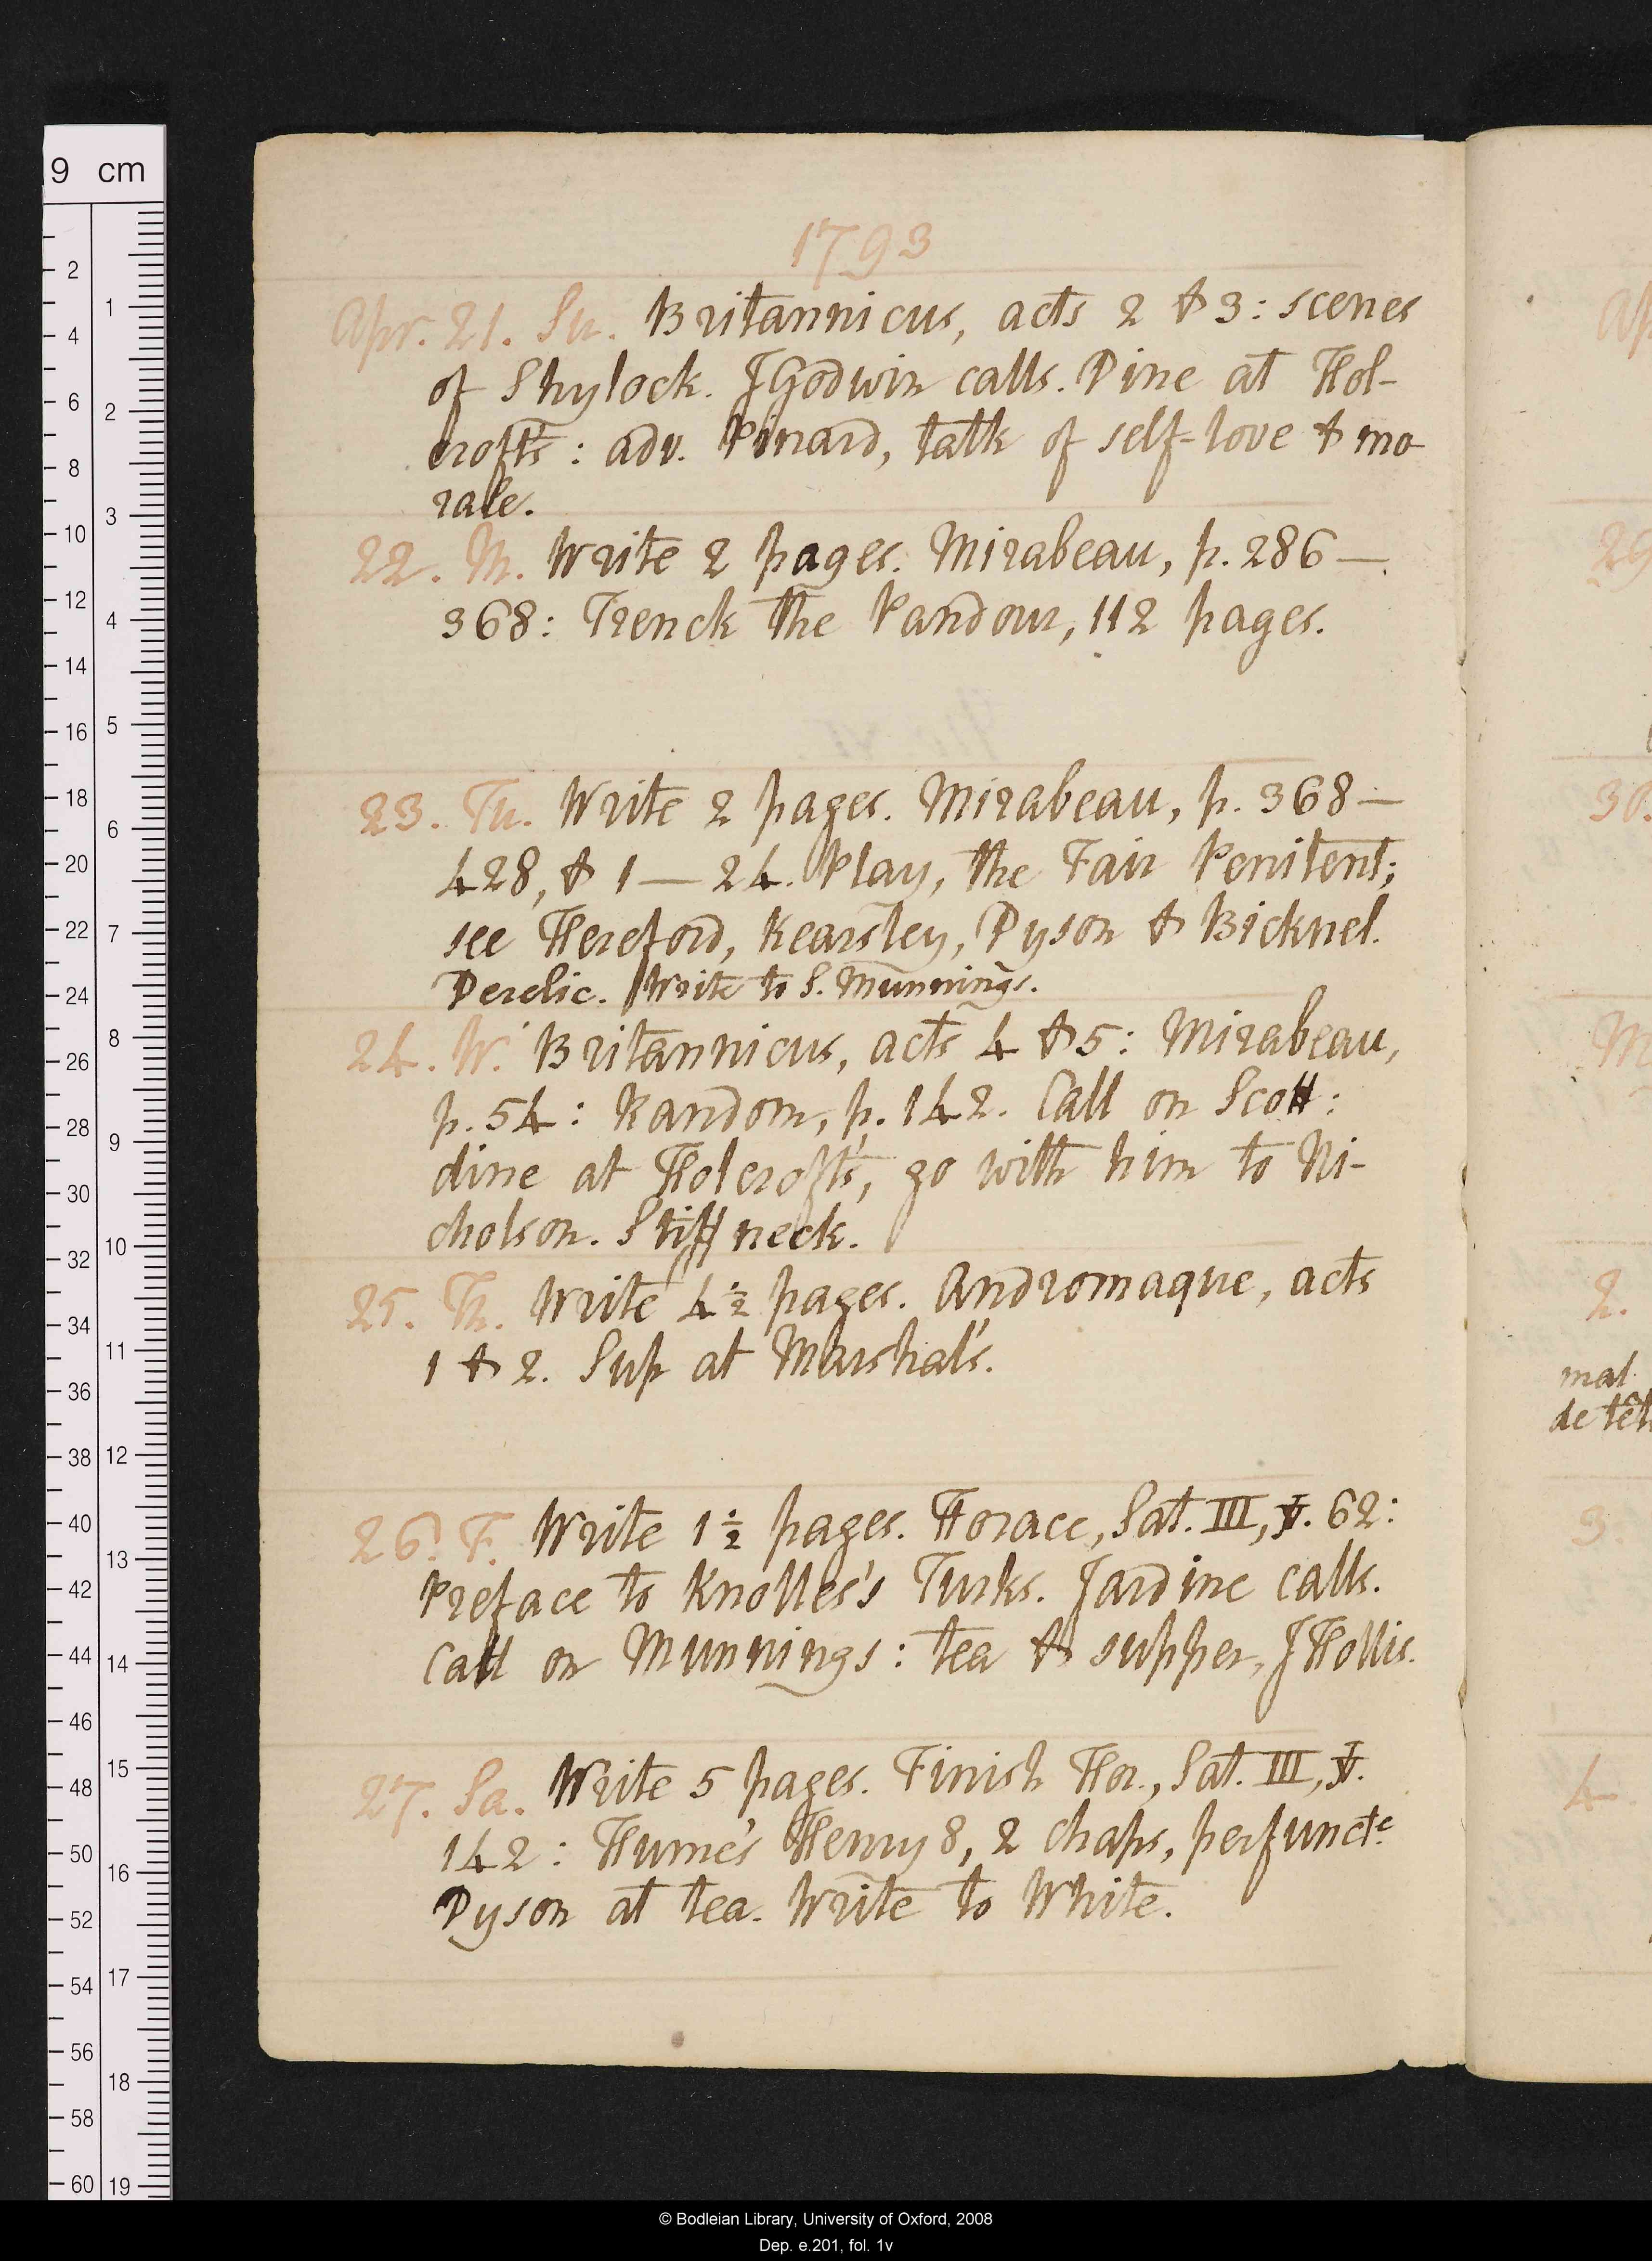 1793
Apr. 21. Su. Britannicus, acts 2 & 3: scenes
of Shylock. JGodwin calls. Dine at Hol-
croft's: adv. Pinard, talk of self-love & mo
rale.
22. M. Write 2 pages. Mirabeau, p. 286—
368: Trenck the Pandour, 112 pages.
23. Tu. Write 2 pages. Mirabeau, p. 368—
428, & 1—24. Play, the Fair Penitent;
see Hereford, Kearsley, Dyson & Bicknel.
Derelic. Write to S. Munnings.
24. W. Britannicus, acts 4 & 5: Mirabeau,
p. 54: Random, p. 142. Call on Scott:
dine at Holcroft's, go with him to Ni-
cholson. Stiff neck.
25. Th. Write 4½ pages. Andromaque, acts
1 & 2. Sup at Marshal's.
26. F. Write 1½ pages. Horace, Sat. III, v. 62:
Preface to Knolles's Turks. Jardine calls.
Call on Munnings: tea & supper, JHollis.
27. Sa. Write 5 pages. Finish Hor., Sat. III, v.
142: Hume's Henry 8, 2 chaps, perfuncte
Dyson at tea. Write to White.
Ap
29
30.
M
2.
mal
de têt
3
4
9 cm
2
4
6
8
10
12
14
16
18
20
22
24
26
28
30
32
34
36
38
40
42
44
46
48
50
52
54
56
58
60
1
2
3
4
5
6
7
8
9
10
11
12
13
14
15
16
17
18
19
© Bodleian Library, University of Oxford, 2008
Dep. e.201, fol. 1v